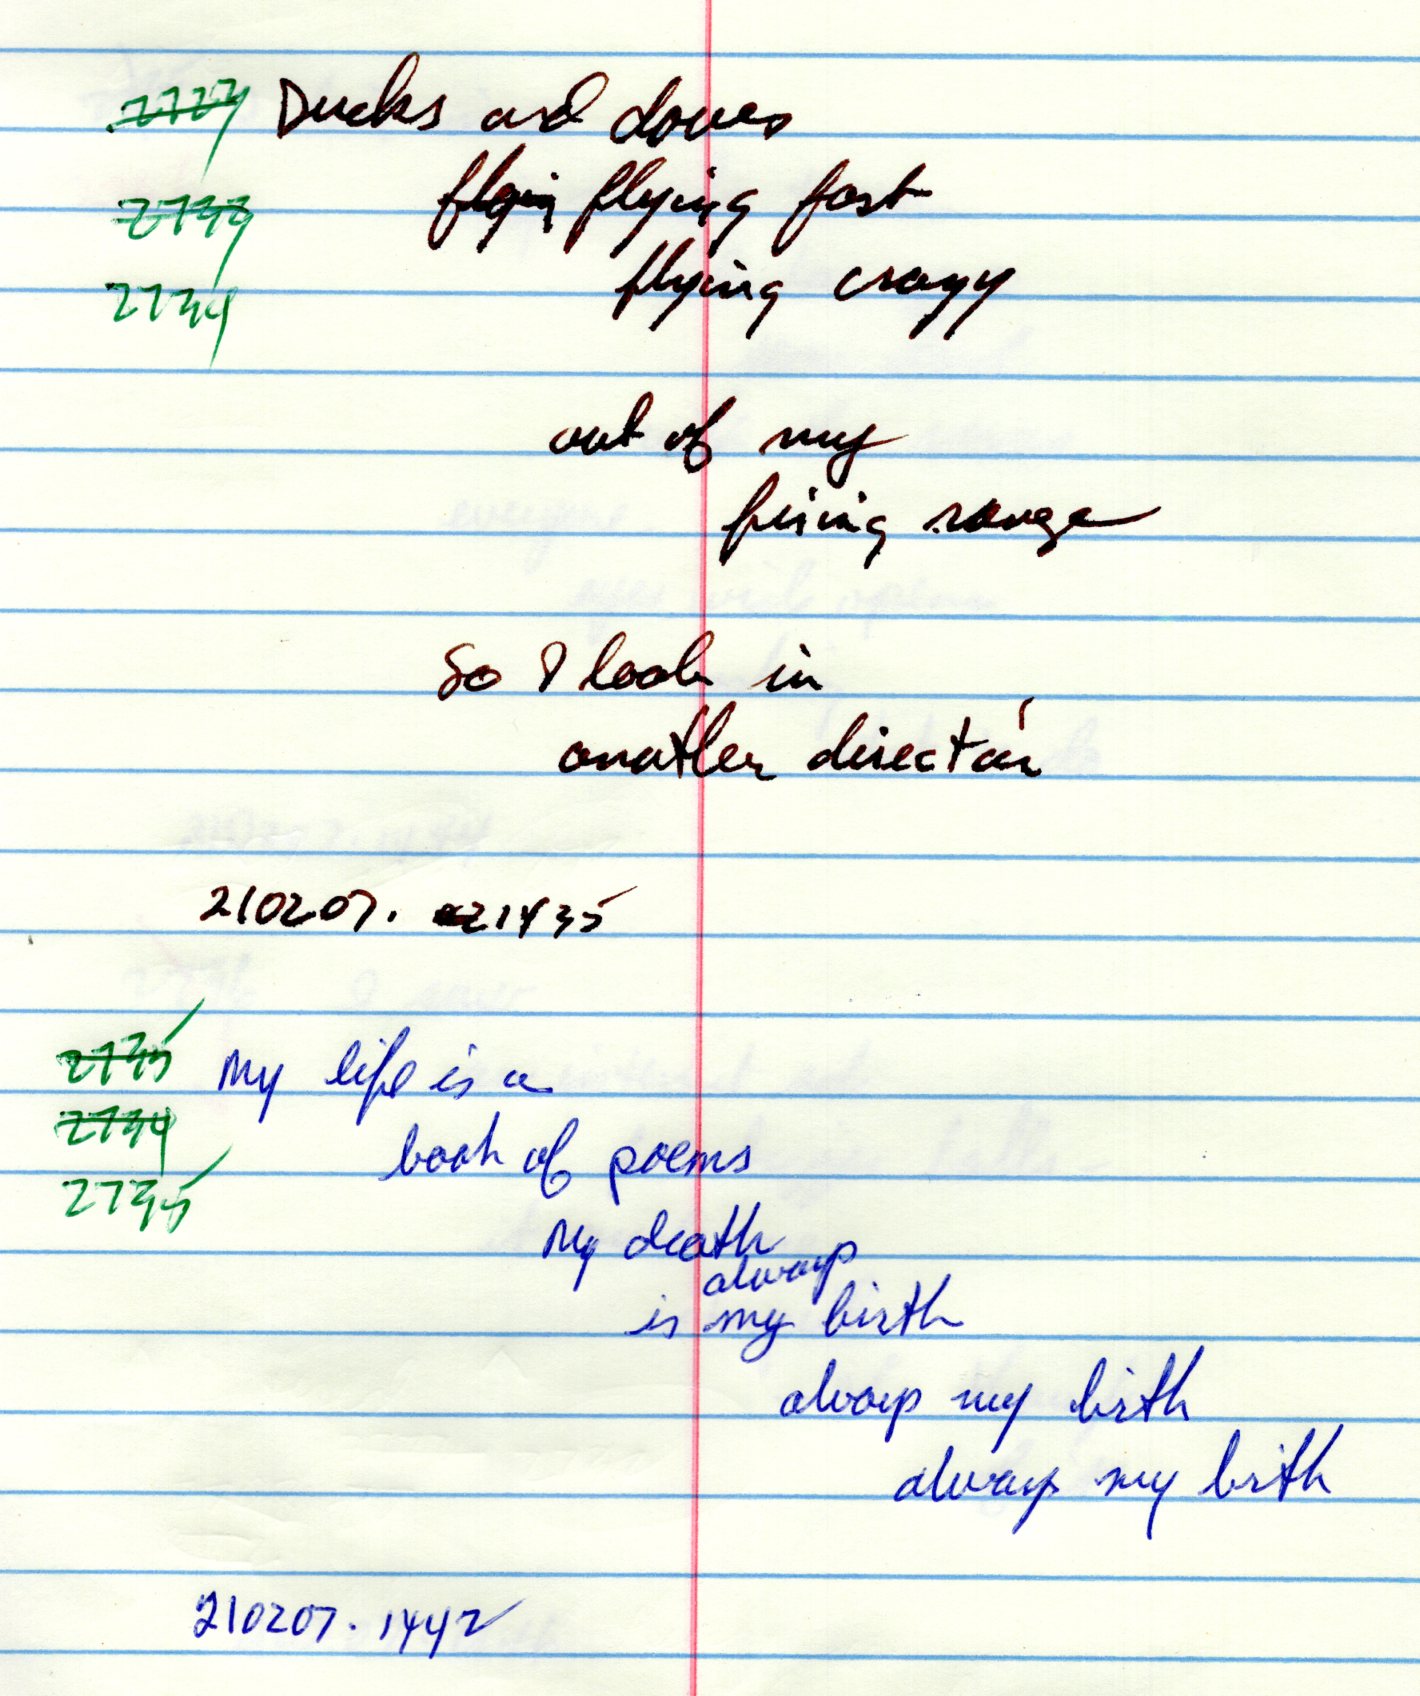 2727 Ducks and doves
2733 flyin flying fast
2734 flying crazy
out of my
firing range
So I look in
another direction
210207. 1435
2735 My life is a
2734 book of poems
2735 My death
always
is my birth
always my birth
always my birth
210207. 1442